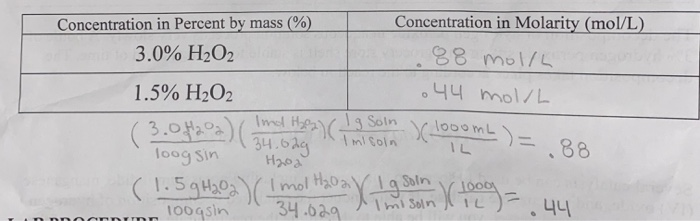 Concentration in Percent by mass (%) Concentration in Molarity (mol/L)
3.0% H₂O₂ .88 mol/L
1.5% H₂O₂ .44 mol/L
(3.0H₂O₂/100g sln)(1mol H₂O₂/34.02g H₂O₂)(1g Soln/1ml soln)(1000mL/1L) = .88
(1.5gH₂O₂/100gsln)(1mol H₂O₂/34.02g)(1g Soln/1ml Soln)(1000g/1L) = .44